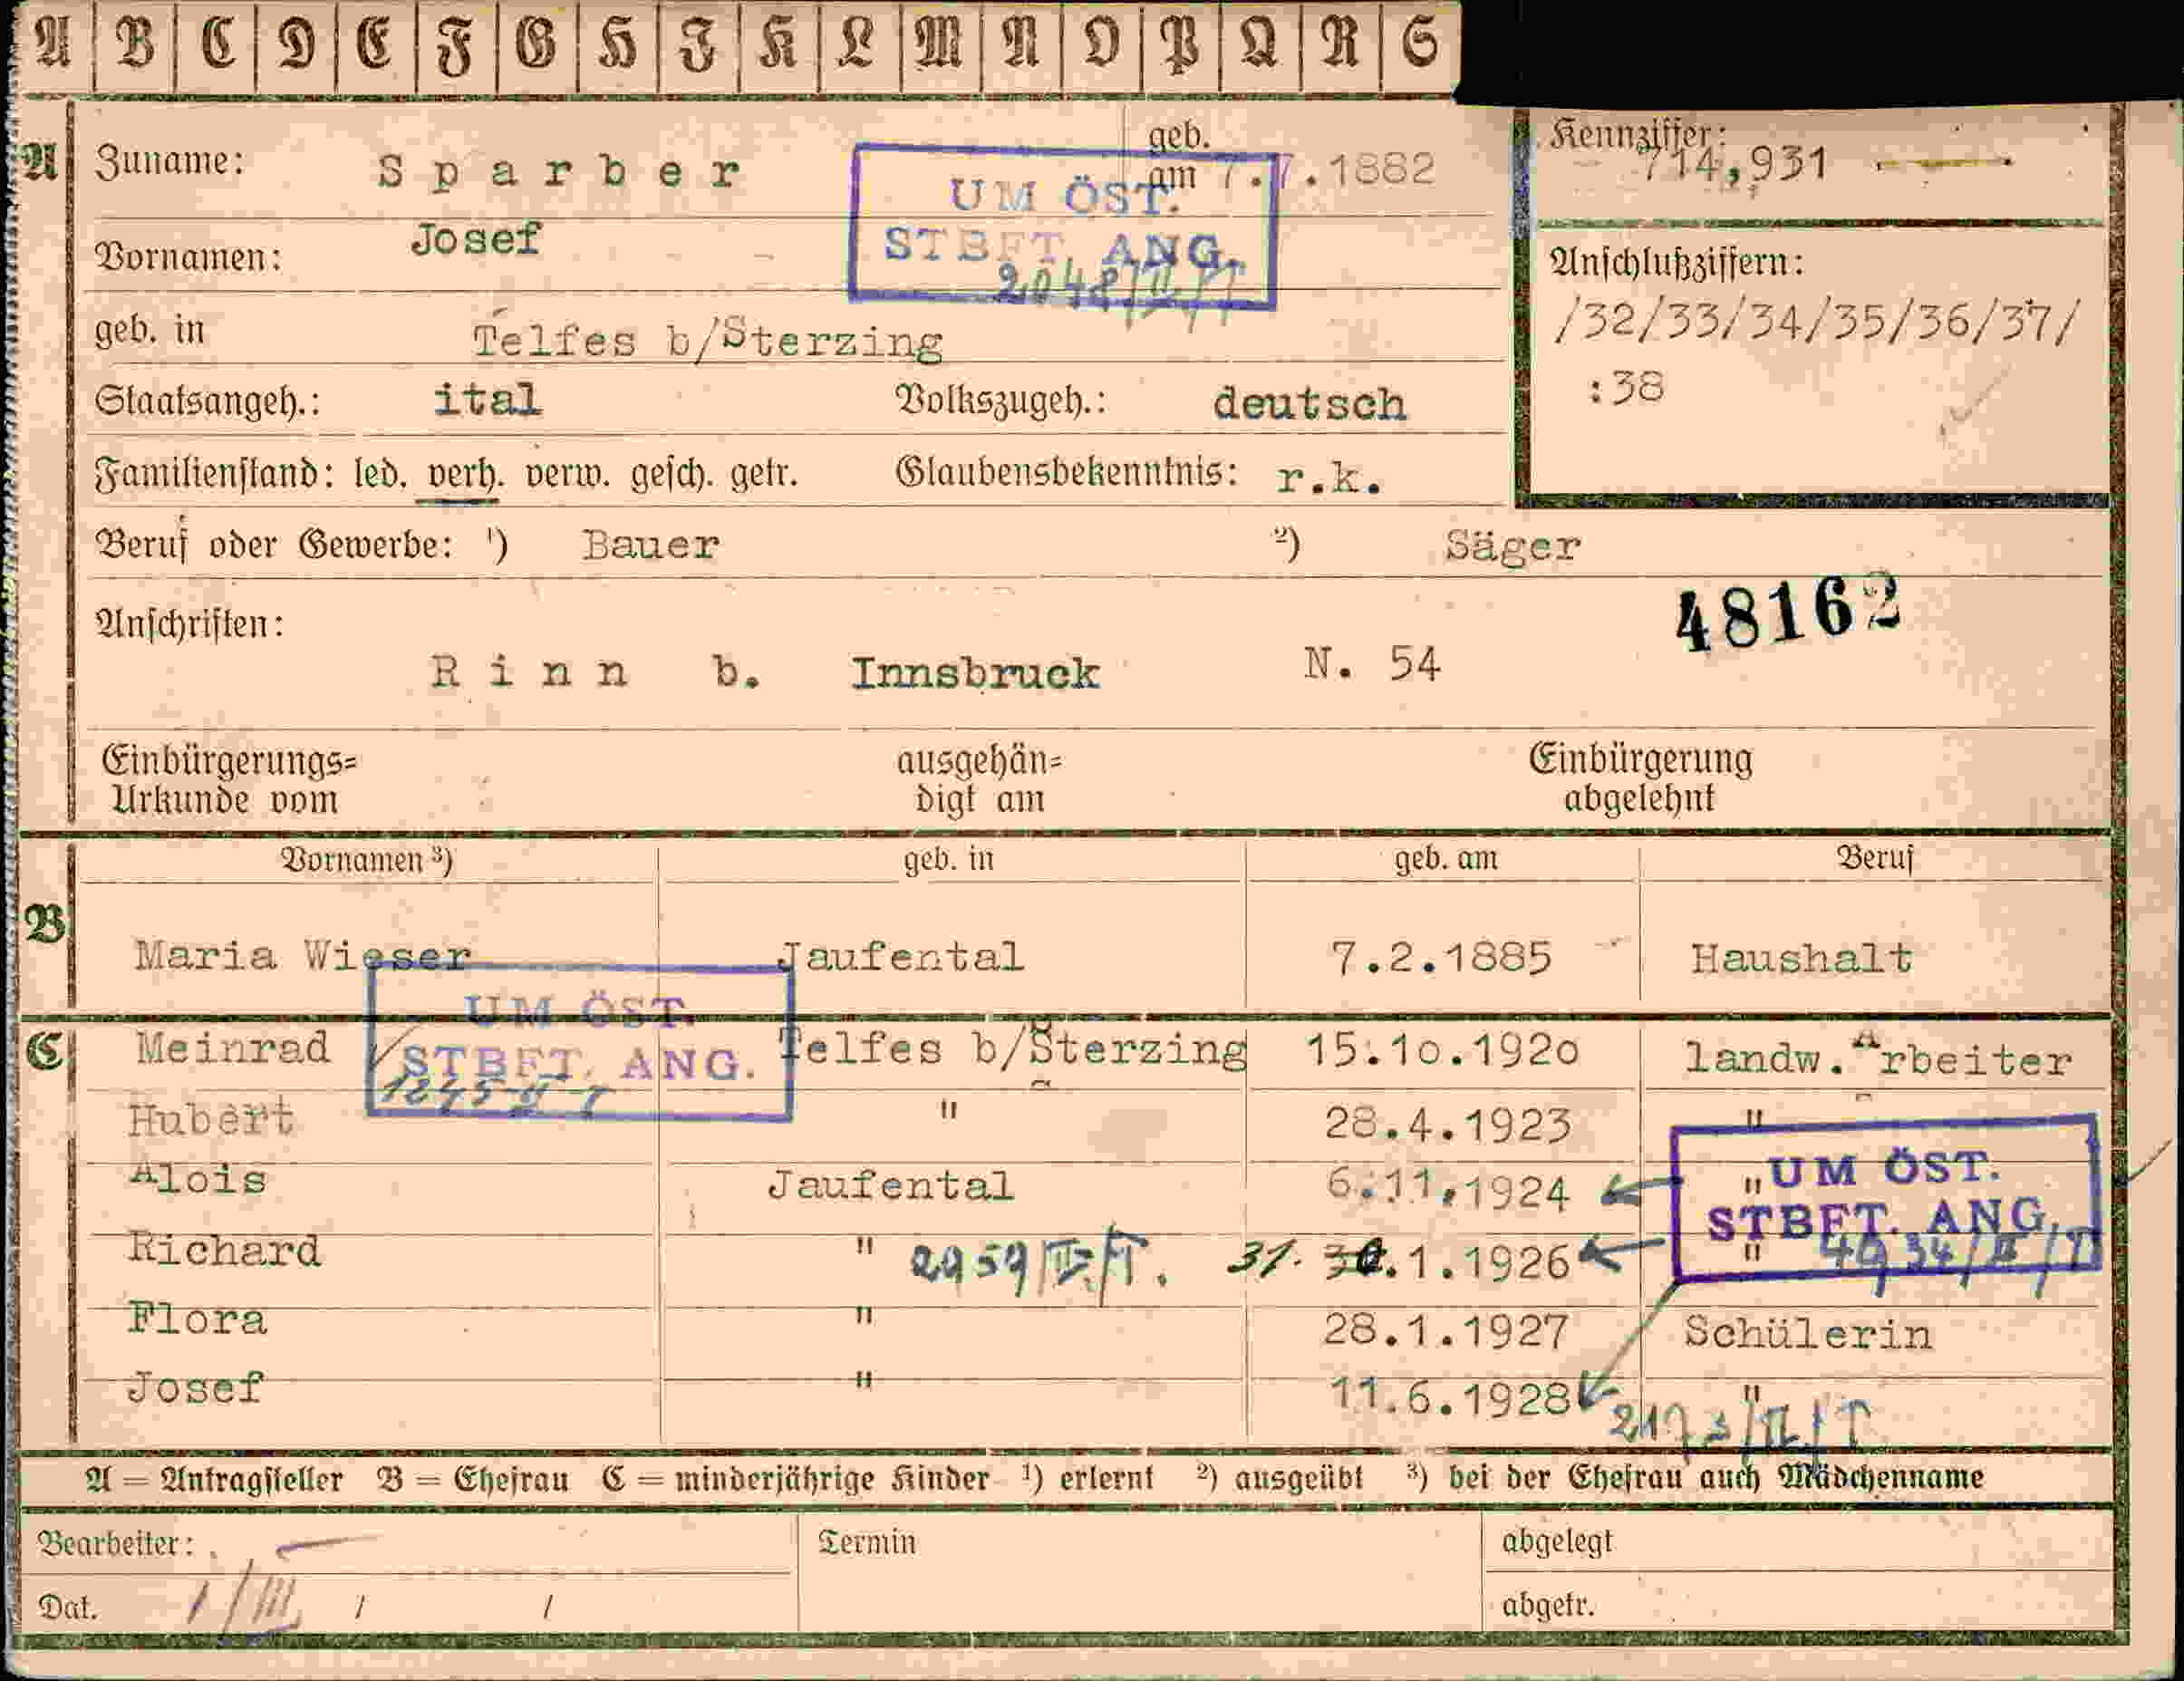 A B C D E F G H J K L M N O P Q R S
A Zuname: Sparber geb. am 7.7.1882
Kennziffer: 714,931
UM ÖST.
STBFT. ANG.
2048/II/T
Vornamen: Josef
geb. in Telfes b/Sterzing
Anschlußziffern:
/32/33/34/35/36/37/
:38
Staatsangeh.: ital Volkszugeh.: deutsch
Familienstand: led. verh. verw. gesch. getr. Glaubensbekenntnis: r.k.
Beruf oder Gewerbe: ¹) Bauer ²) Säger
48162
Anschriften:
Rinn b. Innsbruck N. 54
Einbürgerungs= ausgehän= Einbürgerung
Urkunde vom digt am abgelehnt
Vornamen ³) geb. in geb. am Beruf
B
Maria Wieser Jaufental 7.2.1885 Haushalt
UM ÖST.
STBFT. ANG.
C Meinrad Telfes b/Sterzing 15.10.1920 landw. Arbeiter
Hubert " 28.4.1923 "
UM ÖST.
STBFT. ANG.
Alois Jaufental 6.11.1924 "
Richard " 2959/II/T. 31. 30.1.1926 "
Flora " 28.1.1927 Schülerin
Josef " 11.6.1928 "
2173/II/T
A = Antragsteller B = Ehefrau C = minderjährige Kinder ¹) erlernt ²) ausgeübt ³) bei der Ehefrau auch Mädchenname
Bearbeiter: Termin abgelegt
Dat. 1/III / / abgetr.